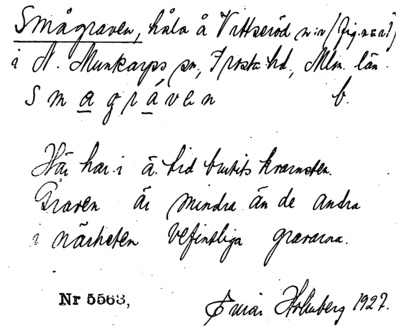 Smågraven, håla å Vittseröd n:r
i N. Munkarps sn, Frosta hd, Mlm. län.
Smagráven b.
Här har i ä. tid brutits kvarnsten.
Graven är mindre än de andra
i närheten befintliga gravarna.
Nr 5563, Einar Holmberg 1927.